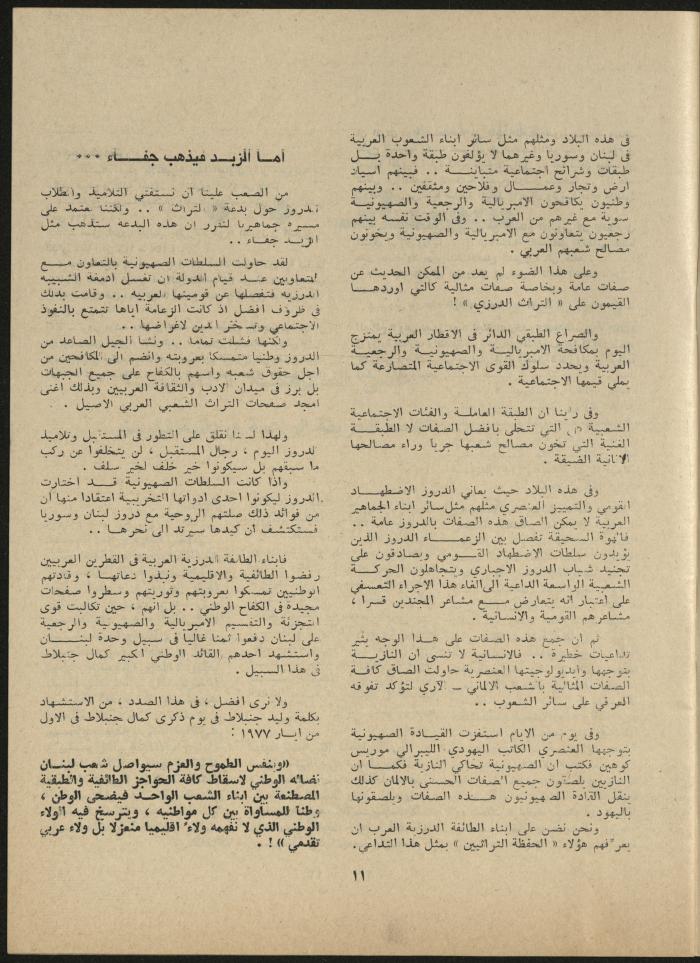 في هذه البلاد ومثلهم مثل سائر ابناء الشعوب العربية
في لبنان وسوريا وغيرهما لا يؤلفون طبقة واحدة بـل
طبقات وشرائح اجتماعية متباينـة .. فبينهم اسياد
ارض وتجار وعمـــال وفلاحين ومثقفين .. وبينهم
وطنيون يكافحون الامبريالية والرجعية والصهيونيـة
سوية مع غيرهم من العرب .. وفي الوقت نفسه بينهم
رجعيون يتعاونون مع الامبريالية والصهيونية ويخونون
مصالح شعبهم العربي .
وعلى هذا الضوء لم يعد من الممكن الحديث عن
صفات عامة وبخاصة صفات مثالية كالتي اوردهـا
القيمون على « التراث الدرزي » !
والصراع الطبقي الدائر في الاقطار العربية يمتزج
اليوم بمكافحة الامبرياليـة والصهيونيـة والرجعيـة
العربية ويحدد سلوك القوى الاجتماعية المتصارعة كما
يملي قيمها الاجتماعية .
وفي راينا ان الطبقة العاملـة والفئات الاجتماعية
الشعبية هي التي تتحلى بافضل الصفات لا الطبقـة
الغنية التي تخون مصالح شعبها جريا وراء مصالحها
الانانية الضيقة .
وفي هذه البلاد حيث يعاني الدروز الاضطهـاد
القومي والتمييز العنصري مثلهم مثل سائر ابناء الجماهير
العربية لا يمكن الصاق هذه الصفات بالدروز عامة ..
فالهوة السحيقة تفصل بين الزعمـاء الدروز الذين
يؤيدون سلطات الاضطهاد القـومي ويصادقون على
تجنيد شباب الدروز الاجباري ويتجاهلون الحركـة
الشعبية الواسعة الداعية الى الغاء هذا الاجراء التعسفي
على اعتبار انه يتعارض مـع مشاعر المجندين قسرا ،
مشاعرهم القومية والانسانية .
ثم ان جمع هذه الصفات على هـذا الوجه يثير
تداعيات خطيرة .. فالانسانية لا تنسى ان النازيـة
بتوجهها وايديولوجيتها العنصرية حاولت الصاق كافـة
الصفات المثالية بالشعب الالماني ــ الآري لتؤكد تفوقه
العرقي على سائر الشعوب ..
وفي يوم من الايام استفزت القيـادة الصهيونية
بتوجهها العنصري الكاتب اليهودي الليبرالي موريس
كوهين فكتب ان الصهيونية تحاكي النازية فكمـا ان
النازيين يلصقون جميع الصفات الحسنى بالالمان كذلك
ينقل القادة الصهيونيون هـذه الصفات ويلصقونها
باليهود .
ونحن نضن على ابناء الطائفة الدرزية العرب ان
يعرفهم هؤلاء « الحفظة التراثيين » بمثل هذا التداعي.
أمـا الزبـد فيذهب جفـاء ...
من الصعب علينا ان نستفتي التلاميذ والطلاب
الدروز حول بدعة « التراث » .. ولكننا نعتمد على
مسيرة جماهيرنا لنقرر ان هذه البدعة ستذهب مثل
الزبـد جفـاء ..
لقد حاولت السلطات الصهيونية بالتعاون مـع
المتعاونين عنـد قيام الدولة ان تغسل ادمغة الشبيبة
الدرزية فتفصلها عن قوميتها العربية .. وقامت بذلك
في ظروف افضل اذ كانت الزعامة اياها تتمتع بالنفوذ
الاجتماعي وتسخر الدين لاغراضها ..
ولكنها فشلت تماما .. ونشا الجيل الصاعد من
الدروز وطنيا متمسكا بعروبته وانضم الى المكافحين من
اجل حقوق شعبه واسهم بالكفاح على جميع الجبهات
بل برز في ميدان الادب والثقافة العربيين وبذلك اغنى
امجد صفحات التراث الشعبي العربي الاصيل .
ولهذا لسنا نقلق على التطور في المستقبل وتلاميذ
الدروز اليوم ، رجال المستقبل ، لن يتخلفوا عن ركب
ما سبقهم بل سيكونوا خير خلف لخير سلف .
واذا كانت السلطات الصهيونية قـد اختارت
الدروز ليكونوا احدى ادواتها التخريبية اعتقادا منها ان
من فوائد ذلك صلتهم الروحية مع دروز لبنان وسوريا
فستكتشف ان كيدها سيرتد الى نحرهـا ..
فابناء الطائفة الدرزية العربية في القطرين العربيين
رفضوا الطائفية والاقليمية ونبذوا دعاتهـا ، وقادتهم
الوطنيين تمسكوا بعروبتهم وثوريتهم وسطروا صفحات
مجيدة في الكفاح الوطني .. بل انهم ، حين تكالبت قوى
التجزئة والتقسيم الامبريالية والصهيونية والرجعية
على لبنان دفعوا ثمنا غاليا في سبيل وحدة لبنـان
واستشهد احدهم القائد الوطني الكبير كمال جنبلاط
في هذا السبيل .
ولا نرى افضل ، في هذا الصدد ، من الاستشهاد
بكلمة وليد جنبلاط في يوم ذكرى كمال جنبلاط في الاول
من ايار ١٩٧٧ :
«وبنفس الطموح والعزم سيواصل شعب لبنـان
نضاله الوطني لاسقاط كافة الحواجز الطائفية والطبقية
المصطنعة بين ابناء الشعب الواحـد فيضحى الوطن ،
وطنا للمساواة بين كل مواطنيه ، ويترسخ فيه الولاء
الوطني الذي لا نفهمه ولاء اقليميا منعزلا بل ولاء عربي
تقدمي » ! .
١١